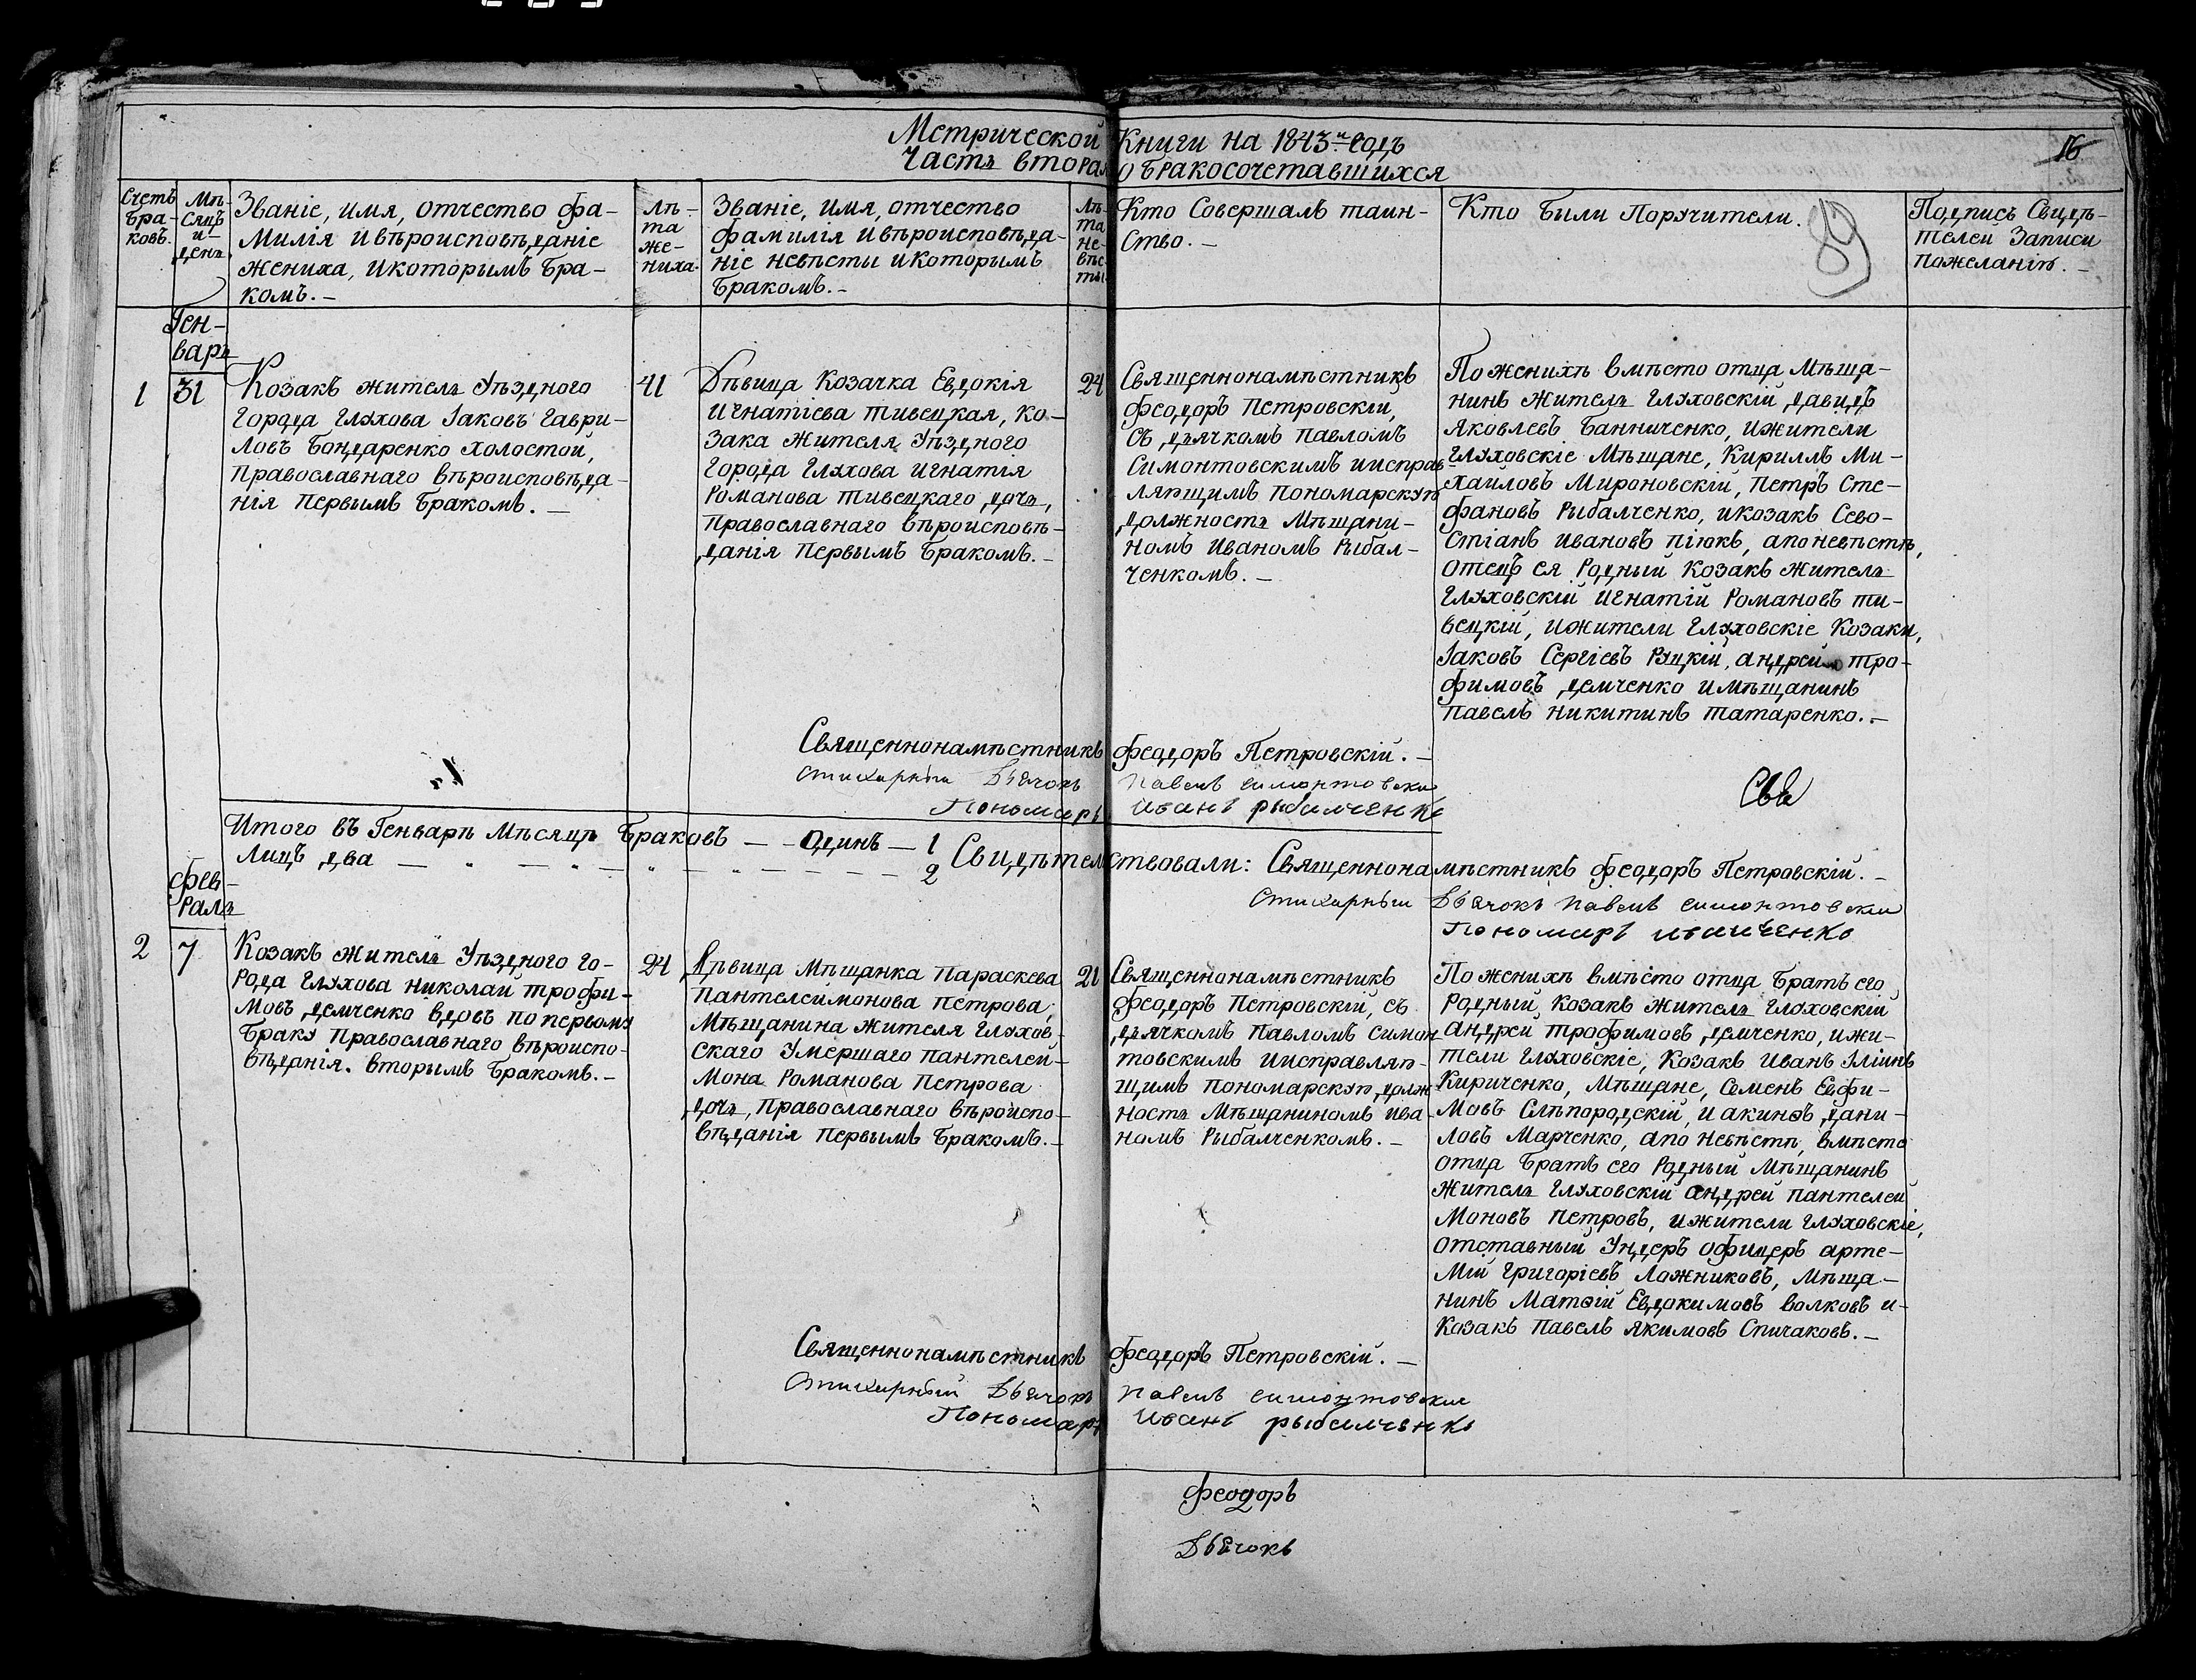 Метрической Книги на 1843й годъ
Часть вторая о Бракосочетавшихся
16
89
Счетъ
Бра-
ковъ.
Мѣ-
сяцъ
и
день.
Званіе, имя, отчество фа-
милія и вѣроисповѣданіе
жениха, и которымъ Бра-
комъ. –
Лѣ-
та
же-
ниха.
Званіе, имя, отчество
фамилія и вѣроисповѣда-
ніе невѣсты и которымъ
Бракомъ. –
Лѣ-
та
не-
вѣс-
ты.
Кто Совершалъ таин-
ство. –
Кто Были Поручители.
Подпись Свидѣ-
телей Записи
пожеланію. –
Генварь
1
31
Козакъ житель Уѣзднаго
города Глухова Іаковъ Гаври-
ловъ Бондаренко холостой,
православнаго вѣроисповѣда-
нія первымъ Бракомъ. –
41
Дѣвица Козачка Евдокія
Игнатіева Тивецкая, ко-
зака жителя Уѣзднаго
города Глухова Игнатія
Романова Тивецкаго дочь,
православнаго вѣроисповѣ-
данія первымъ Бракомъ. –
24
Священнонамѣстникъ
Феодоръ Петровскій,
съ дьячкомъ Павломъ
Симонтовскимъ и исправ-
ляющимъ пономарскую
должность Мѣщани-
номъ Иваномъ Рыбал-
ченкомъ. –
По женихѣ вмѣсто отца Мѣща-
нинъ житель Глуховскій Давидъ
Яковлевъ Банниченко, и жители
Глуховскіе Мѣщане, Кириллъ Ми-
хайловъ Мироновскій, Петръ Сте-
фановъ Рыбалченко, и козакъ Сево-
стіанъ Ивановъ Піюкъ, а по невѣстѣ,
отецъ ея Родный Козакъ житель
Глуховскій Игнатій Романовъ Ти-
вецкій, и жители Глуховскіе Козаки,
Іаковъ Сергіевъ Руцкій, Андрей Тро-
фимовъ Демченко и мѣщанинъ
Павелъ Никитинъ Татаренко. –
Священнонамѣстникъ Феодоръ Петровскій. –
Стихарный Дьячокъ Павелъ Симонтовски
Пономарь Иванъ Рыбалченко
Свя
Итого въ Генварѣ Мѣсяцѣ Браковъ – – Одинъ – 1
Лицъ два – – – 2
Свидѣтельствовали: Священнонамѣстникъ Феодоръ Петровскій. –
Стихарный Дьячокъ Павелъ Симонтовски
Пономарь
Фев-
раль
2
7
Козакъ житель Уѣзднаго го-
рода Глухова Николай Трофи-
мовъ Демченко вдовъ по первому
Браку Православнаго вѣроиспо-
вѣданія. вторымъ Бракомъ. –
24
Дѣвица Мѣщанка Параскева
Пантелеймонова Петрова,
Мѣщанина жителя Глухов-
скаго умершаго Пантелей-
мона Романова Петрова
дочь, Православнаго вѣроиспо-
вѣданія первымъ Бракомъ. –
21
Священнонамѣстникъ
Феодоръ Петровскій, съ
дьячкомъ Павломъ Симон-
товскимъ и исправляю-
щимъ пономарскую долж-
ность Мѣщаниномъ Ива-
номъ Рыбалченкомъ. –
По женихѣ вмѣсто отца Братъ его
Родный, козакъ житель Глуховскій
Андрей Трофимовъ Демченко, и жи-
тели Глуховскіе, Козакъ Иванъ Іліинъ
Кириченко, Мѣщане, Семенъ Евфи-
мовъ Слѣпородскій, и Акинѳъ Дани-
ловъ Марченко, а по невѣстѣ, вмѣсто
отца Братъ его Родный Мѣщанинъ
житель Глуховскій Андрей Пантелей
моновъ Петровъ, и жители Глуховскіе,
отставный Ундеръ офицеръ Арте-
мій Григоріевъ Ложниковъ, Мѣща-
нинъ Матѳій Евдокимовъ Волковъ и
Козакъ Павелъ Якимовъ Спичаковъ. –
Священнонамѣстникъ Феодоръ Петровскій. –
Стихарный Дьячокъ Павелъ Симонтовски
Пономарь Иванъ Рыбалченко
Феодоръ
Дьячокъ